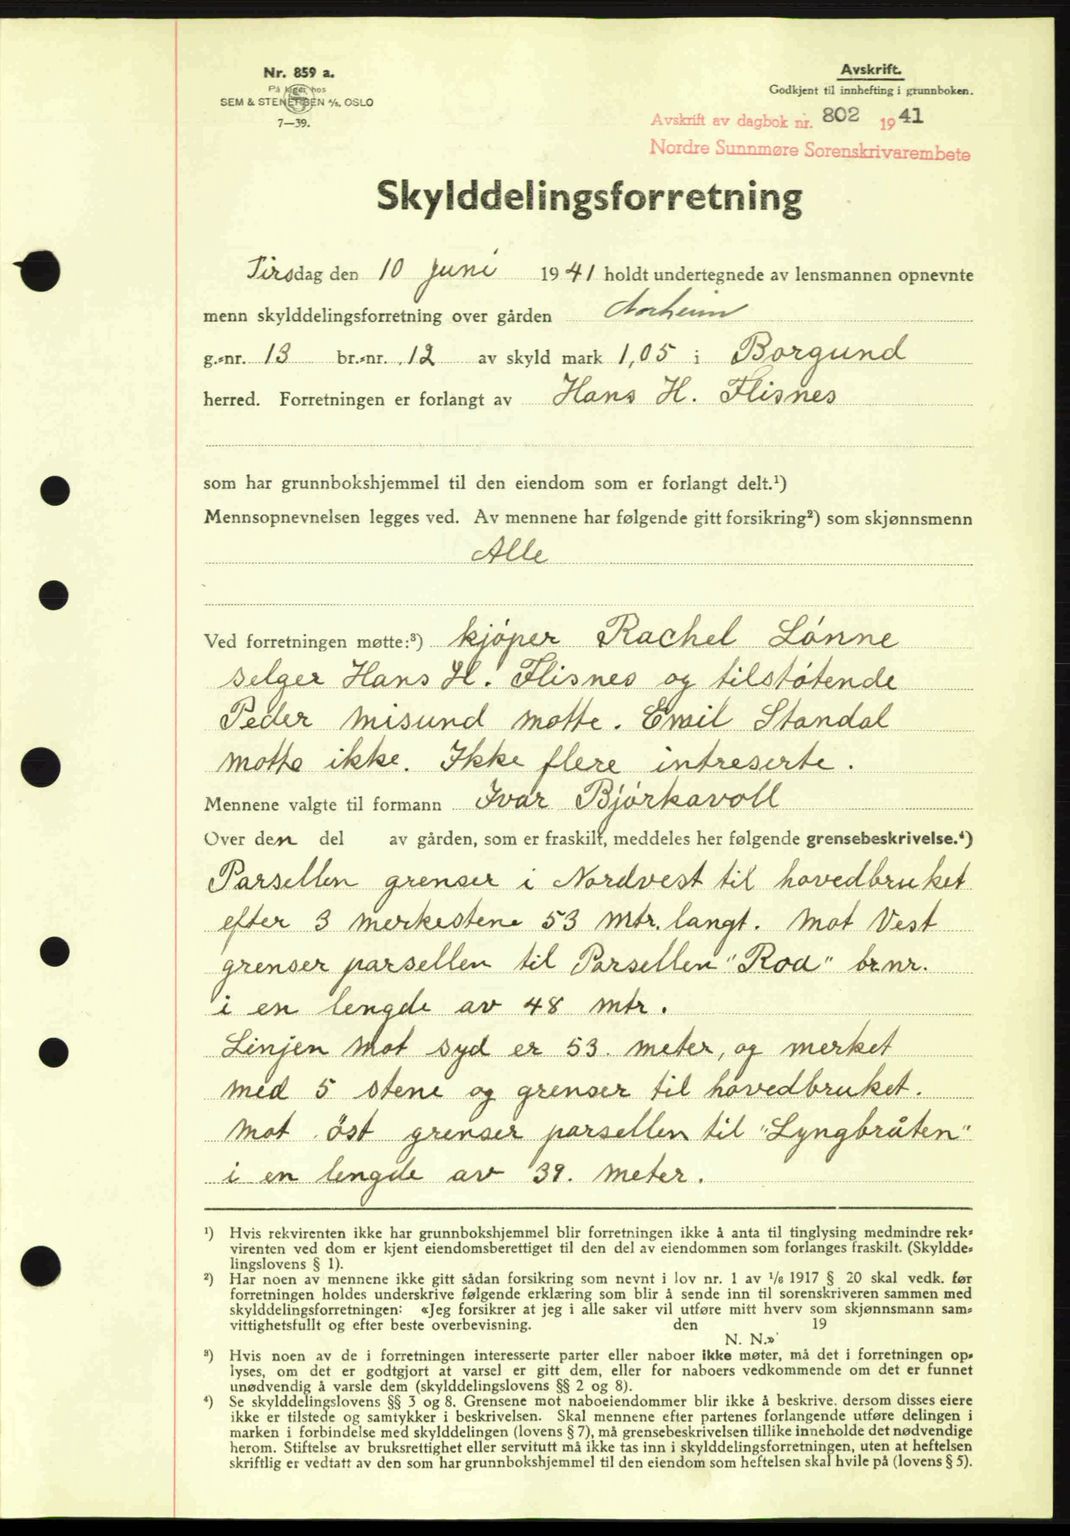 Nr. 859 a.
På lager hos
SEM & STENERSEN A/S, OSLO
7—39.
Avskrift.
Godkjent til innhefting i grunnboken.
Avskrift av dagbok nr. 802 1941
Nordre Sunnmøre Sorenskrivarembete
Skylddelingsforretning
Tirsdag den 10 Juni 1941 holdt undertegnede av lensmannen opnevnte
menn skylddelingsforretning over gården Norheim
g.-nr. 13 br.-nr. 12 av skyld mark 1,05 i Borgund
herred. Forretningen er forlangt av Hans H. Flisnes
som har grunnbokshjemmel til den eiendom som er forlangt delt.¹)
Mennsopnevnelsen legges ved. Av mennene har følgende gitt forsikring²) som skjønnsmenn
Alle
Ved forretningen møtte:³) kjøper Rachel Lønne
selger Hans H. Flisnes og tilstøtende
Peder Misund møtte. Emil Standal
møtte ikke. Ikke flere intreserte.
Mennene valgte til formann Ivar Bjørkavoll
Over den del av gården, som er fraskilt, meddeles her følgende grensebeskrivelse.⁴)
Parsellen grenser i Nordvest til hovedbruket
efter 3 merkestene 53 mtr. langt. Mot Vest
grenser parsellen til Parsellen "Roa" br.nr.
i en lengde av 48 mtr.
Linjen mot syd er 53. meter, og merket
med 5 stene og grenser til hovedbruket.
Mot öst grenser parsellen til "Lyngbråten"
i en lengde av 39. meter.
¹) Hvis rekvirenten ikke har grunnbokshjemmel blir forretningen ikke å anta til tinglysing medmindre rek-
virenten ved dom er kjent eiendomsberettiget til den del av eiendommen som forlanges fraskilt. (Skyldde-
lingslovens § 1).
²) Har noen av mennene ikke gitt sådan forsikring som nevnt i lov nr. 1 av 1/6 1917 § 20 skal vedk. før
forretningen holdes underskrive følgende erklæring som blir å sende inn til sorenskriveren sammen med
skylddelingsforretningen: «Jeg forsikrer at jeg i alle saker vil utføre mitt hverv som skjønnsmann sam-
vittighetsfullt og efter beste overbevisning. den 19
N. N.»
³) Hvis noen av de i forretningen interesserte parter eller naboer ikke møter, må det i forretningen op-
lyses, om det er godtgjort at varsel er gitt dem, eller for naboers vedkommende om det er funnet
unødvendig å varsle dem (skylddelingslovens §§ 2 og 8).
⁴) Se skylddelingslovens §§ 3 og 8. Grensene mot naboeiendommer blir ikke å beskrive. dersom disses eiere
ikke er tilstede og samtykker i beskrivelsen. Skal mennene efter partenes forlangende utføre delingen i
marken i forbindelse med skylddelingen (lovens § 7), må grensebeskrivelsen tillike inneholde det nødvendige
herom. Stiftelse av bruksrettighet eller servitutt må ikke tas inn i skylddelingsforretningen, uten at heftelsen
skriftlig er vedtatt av den som har grunnbokshjemmel til den eiendom som heftelsen skal hvile på (lovens § 5).